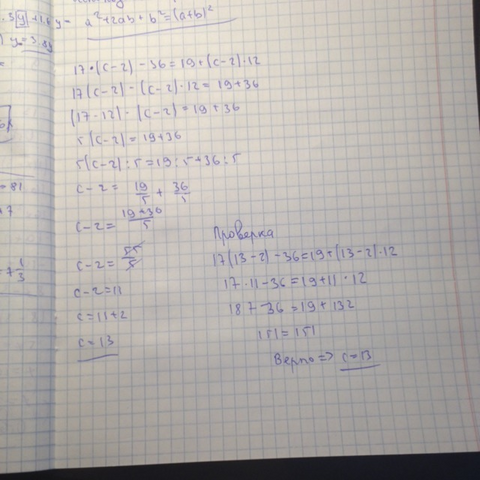 a²+2ab+b²=(a+b)²
17·(c-2)-36=19+(c-2)·12
17(c-2)-(c-2)·12=19+36
(17-12)·(c-2)=19+36
5(c-2)=19+36
5(c-2):5=19:5+36:5
c-2=19/5+36/5
c-2=19+36/5
c-2=55/5
c-2=11
c=11+2
c=13
Проверка
17(13-2)-36=19+(13-2)·12
17·11-36=19+11·12
187-36=19+132
151=151
Верно=>c=13
=81